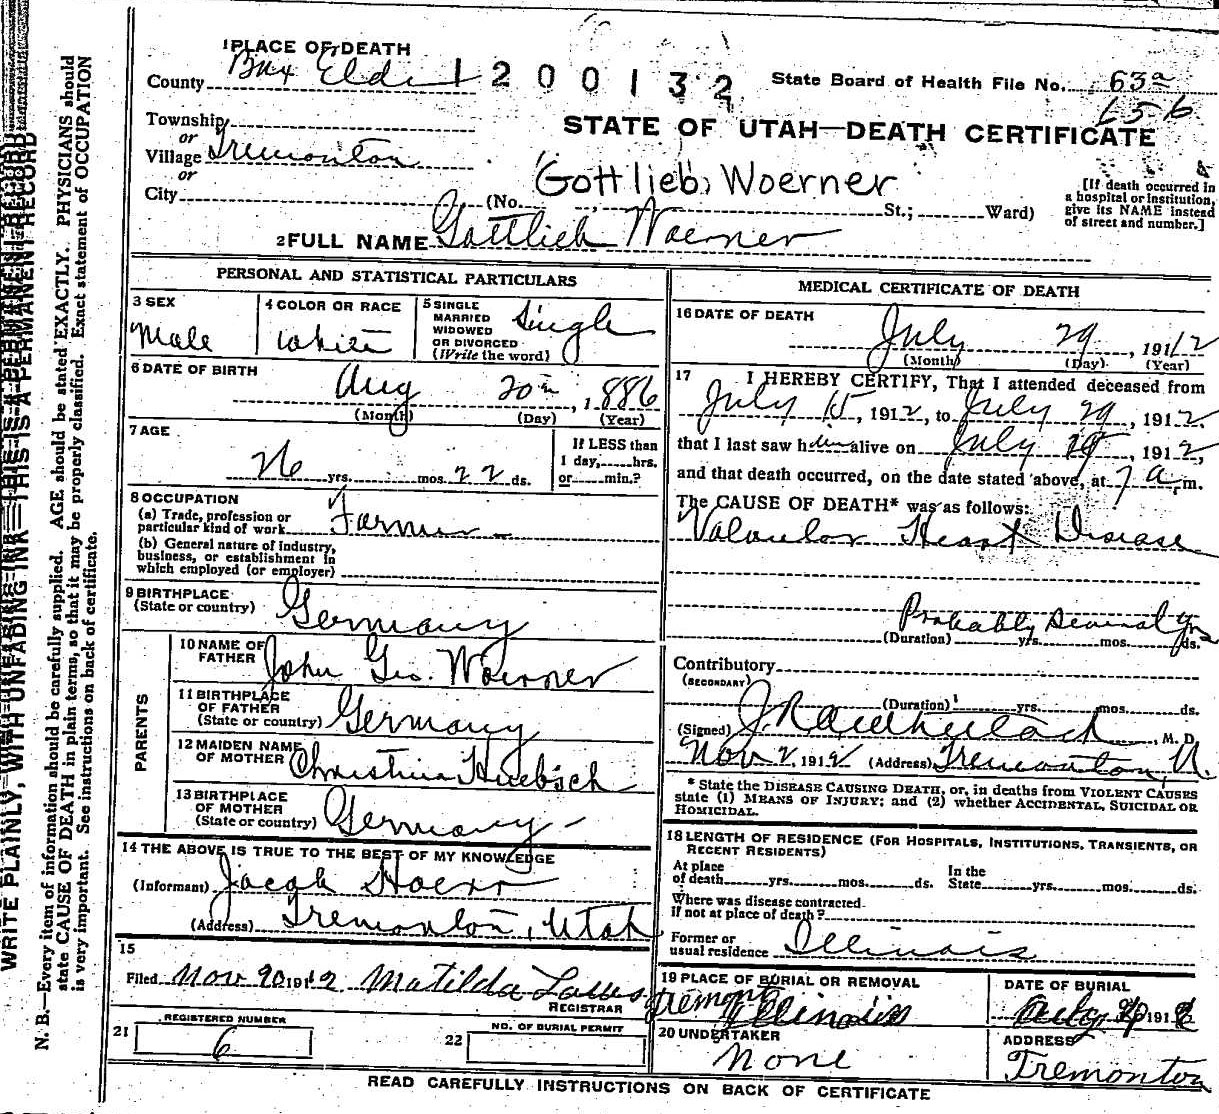 WRITE PLAINLY, WITH UNFADING INK—THIS IS A PERMANENT RECORD
N. B.—Every item of information should be carefully supplied. AGE should be stated EXACTLY. PHYSICIANS should
state CAUSE OF DEATH in plain terms, so that it may be properly classified. Exact statement of OCCUPATION
is very important. See instructions on back of certificate.
1 PLACE OF DEATH
County Box Elder 1200132 State Board of Health File No. 63a
65b
Township
or
Village Tremonton
or
City
STATE OF UTAH—DEATH CERTIFICATE
Gottlieb Woerner
(No. St.; Ward)
[If death occurred in
a hospital or institution,
give its NAME instead
of street and number.]
2 FULL NAME Gottlieb Woerner
PERSONAL AND STATISTICAL PARTICULARS
3 SEX
Male
4 COLOR OR RACE
White
5 SINGLE
MARRIED
WIDOWED
OR DIVORCED
(Write the word)
Single
6 DATE OF BIRTH
Aug 20th, 1886
(Month) (Day) (Year)
7 AGE
26 yrs. mos. 22 ds.
If LESS than
1 day, hrs.
or min.?
8 OCCUPATION
(a) Trade, profession or
particular kind of work Farmer
(b) General nature of industry,
business, or establishment in
which employed (or employer)
9 BIRTHPLACE
(State or country) Germany
PARENTS
10 NAME OF
FATHER John Geo. Woerner
11 BIRTHPLACE
OF FATHER
(State or country) Germany
12 MAIDEN NAME
OF MOTHER Christina Huebsch
13 BIRTHPLACE
OF MOTHER
(State or country) Germany
14 THE ABOVE IS TRUE TO THE BEST OF MY KNOWLEDGE
(Informant) Jacob Hoerr
(Address) Tremonton, Utah
15
Filed Nov 20 1912 Matilda
REGISTRAR
21 REGISTERED NUMBER
6
22 NO. OF BURIAL PERMIT
MEDICAL CERTIFICATE OF DEATH
16 DATE OF DEATH
July 29, 1912
(Month) (Day) (Year)
17 I HEREBY CERTIFY, That I attended deceased from
July 15, 1912, to July 29, 1912.
that I last saw him alive on July 29, 1912,
and that death occurred, on the date stated above, at 7 a.m.
The CAUSE OF DEATH* was as follows:
Valvular Heart Disease
Probably Several yrs
(Duration) yrs. mos. ds.
Contributory
(SECONDARY)
(Duration) yrs. mos. ds.
(Signed) M. D.
Nov 2, 1912 (Address) Tremonton, U.
* State the DISEASE CAUSING DEATH, or, in deaths from VIOLENT CAUSES
state (1) MEANS OF INJURY; and (2) whether ACCIDENTAL, SUICIDAL OR
HOMICIDAL.
18 LENGTH OF RESIDENCE (FOR HOSPITALS, INSTITUTIONS, TRANSIENTS, OR
RECENT RESIDENTS)
At place
of death yrs. mos. ds. In the
State yrs. mos. ds.
Where was disease contracted
if not at place of death?
Former or
usual residence Illinois
19 PLACE OF BURIAL OR REMOVAL
Tremont
Illinois
DATE OF BURIAL
191
20 UNDERTAKER
None
ADDRESS
Tremonton
READ CAREFULLY INSTRUCTIONS ON BACK OF CERTIFICATE